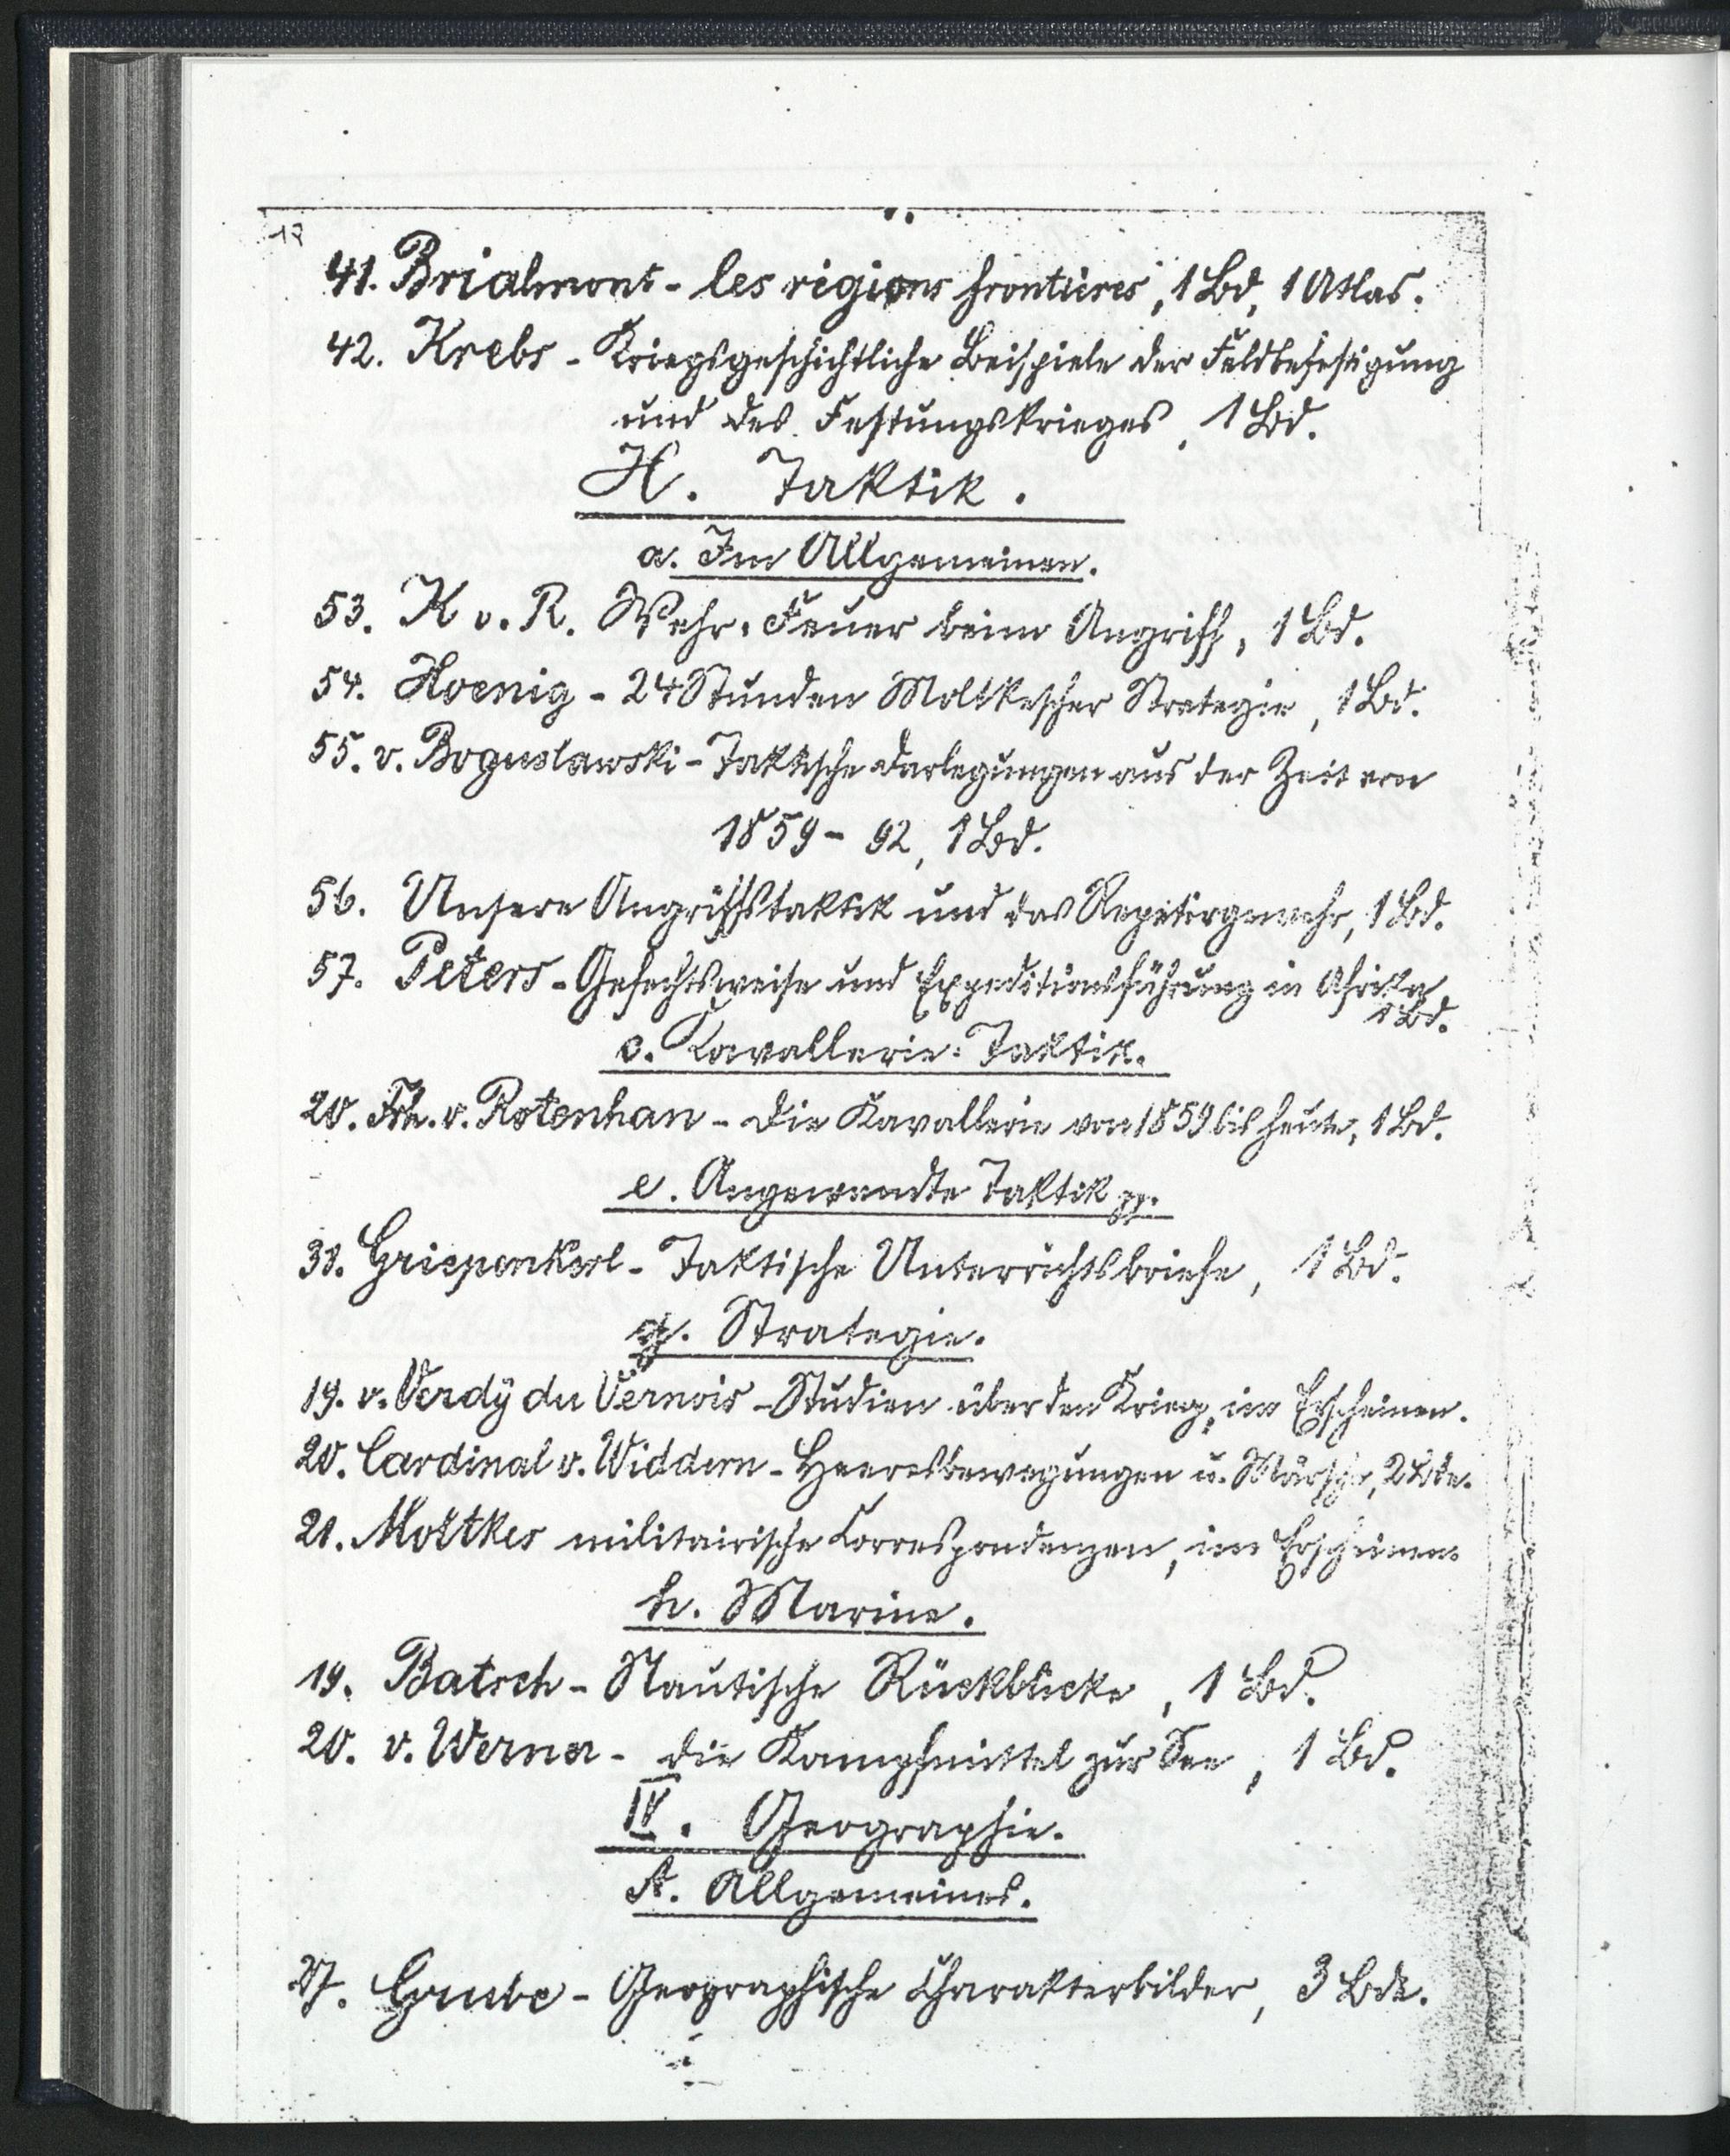 17
41. Brialmont - les régions frontières, 1 Bd, 1 Atlas.
42. Krebs - Kriegsgeschichtliche Beispiele der Feldbefestigung
und des Festungskrieges, 1 Bd.
H. Taktik.
a. Im Allgemeinen.
53. K v. R. Wehr. Feuer beim Angriff, 1 Bd.
54. Hoenig - 24 Stunden Moltkescher Strategie, 1 Bd.
55. v. Boguslawski - Taktische Darlegungen aus der Zeit von
1859 - 92, 1 Bd.
56. Unsere Angriffstaktik und das Repetirgewehr, 1 Bd.
57. Peters - Gefechtsweise und Expeditionsführung in Afrika
1 Bd.
c. Kavallerie-Taktik.
20. Frh. v. Rotenhan - Die Kavallerie von 1859 bis heute, 1 Bd.
e. Angewandte Taktik pp.
38. Griepenkerl - Taktische Unterrichtsbriefe, 1 Bd.
g. Strategie.
19. v. Verdÿ du Vernois - Studien über den Krieg, im Erscheinen.
20. Cardinal v. Widdern - Heeresbewegungen u. Märsche, 2 Bde.
21. Moltkes militairische Correspondenzen, im Erscheinen.
h. Marine.
19. Batsch - Nautische Rückblicke, 1 Bd.
20. v. Werner - Die Kampfmittel zur See, 1 Bd.
IV. Geographie.
A. Allgemeines.
27. Grube - Geographische Charakterbilder, 3 Bde.